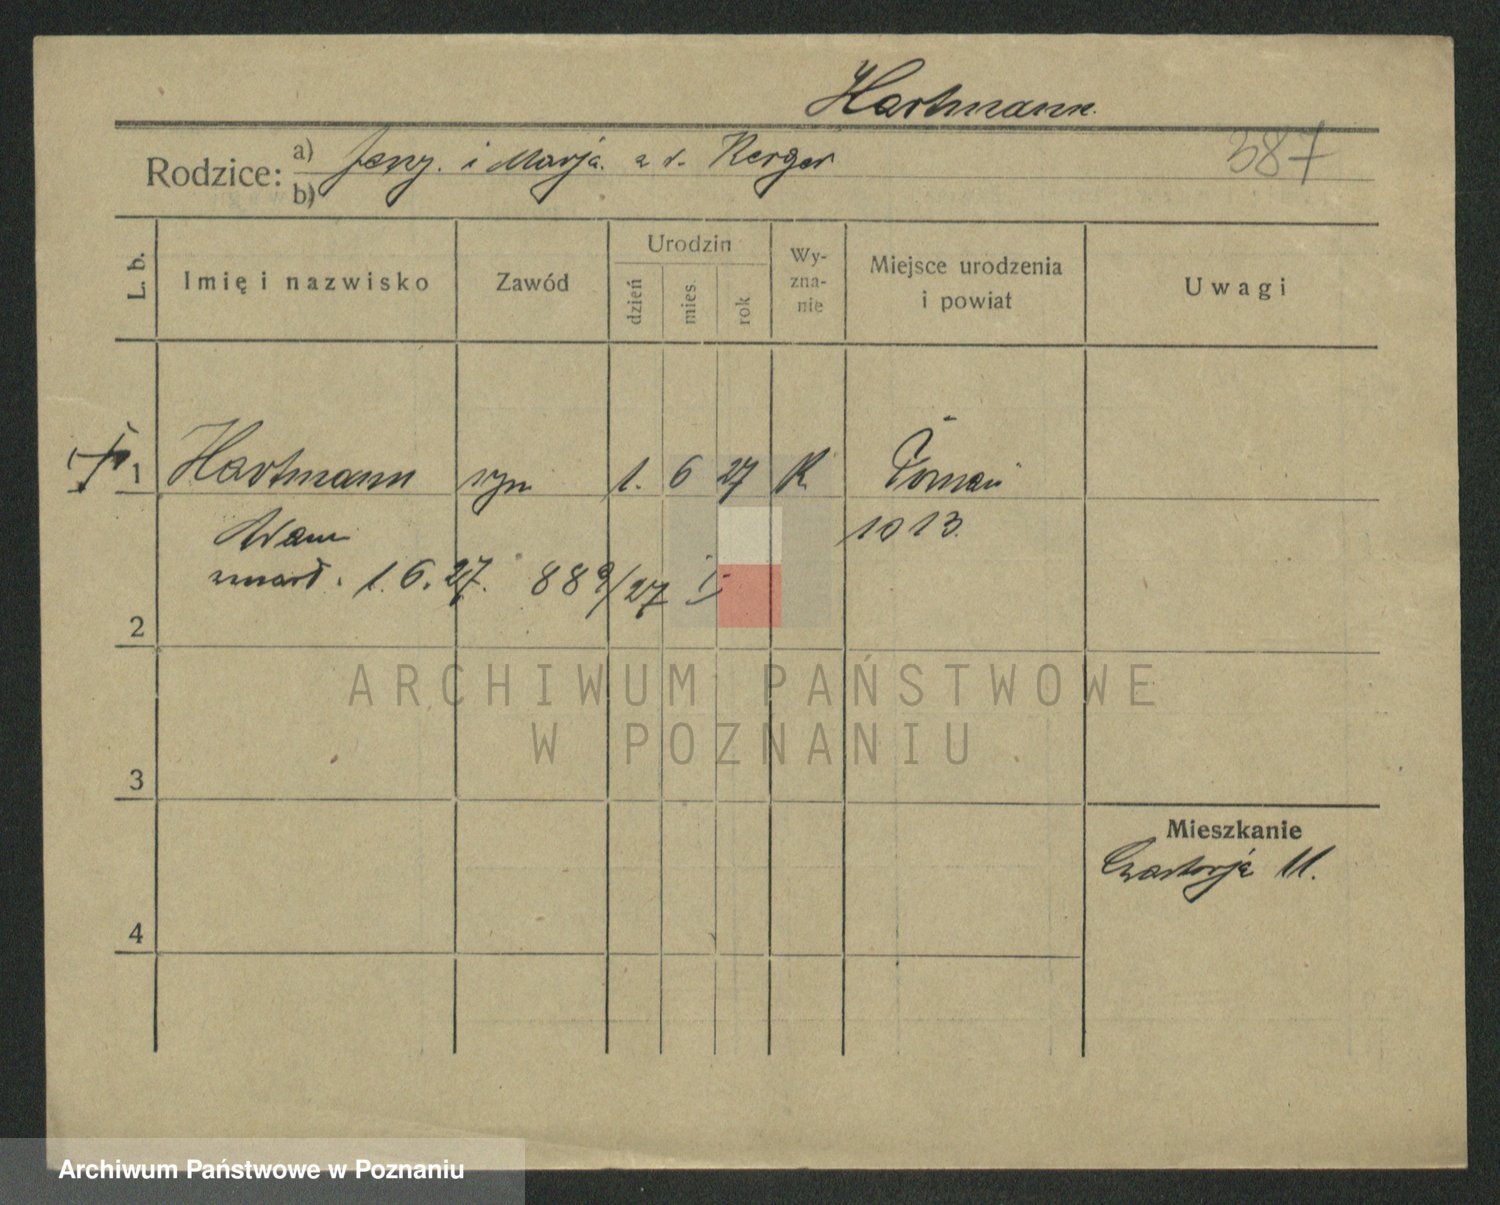 Hartmann.
387
Rodzice: a) Jerzy. i Marja. z d. Kerger
b)
L. b. Imię i nazwisko Zawód Urodzin dzień mies. rok Wy-zna-nie Miejsce urodzenia i powiat Uwagi
1 Hartmann syn 1. 6 27 K. Poznań
Adam 1013.
zmarł. 1.6.27. 889/27 I
2
ARCHIWUM PAŃSTWOWE
W POZNANIU
3
Mieszkanie
Czartorja 11.
4
Archiwum Państwowe w Poznaniu